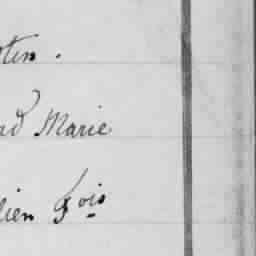 tin.
ad Marie
lien Fois